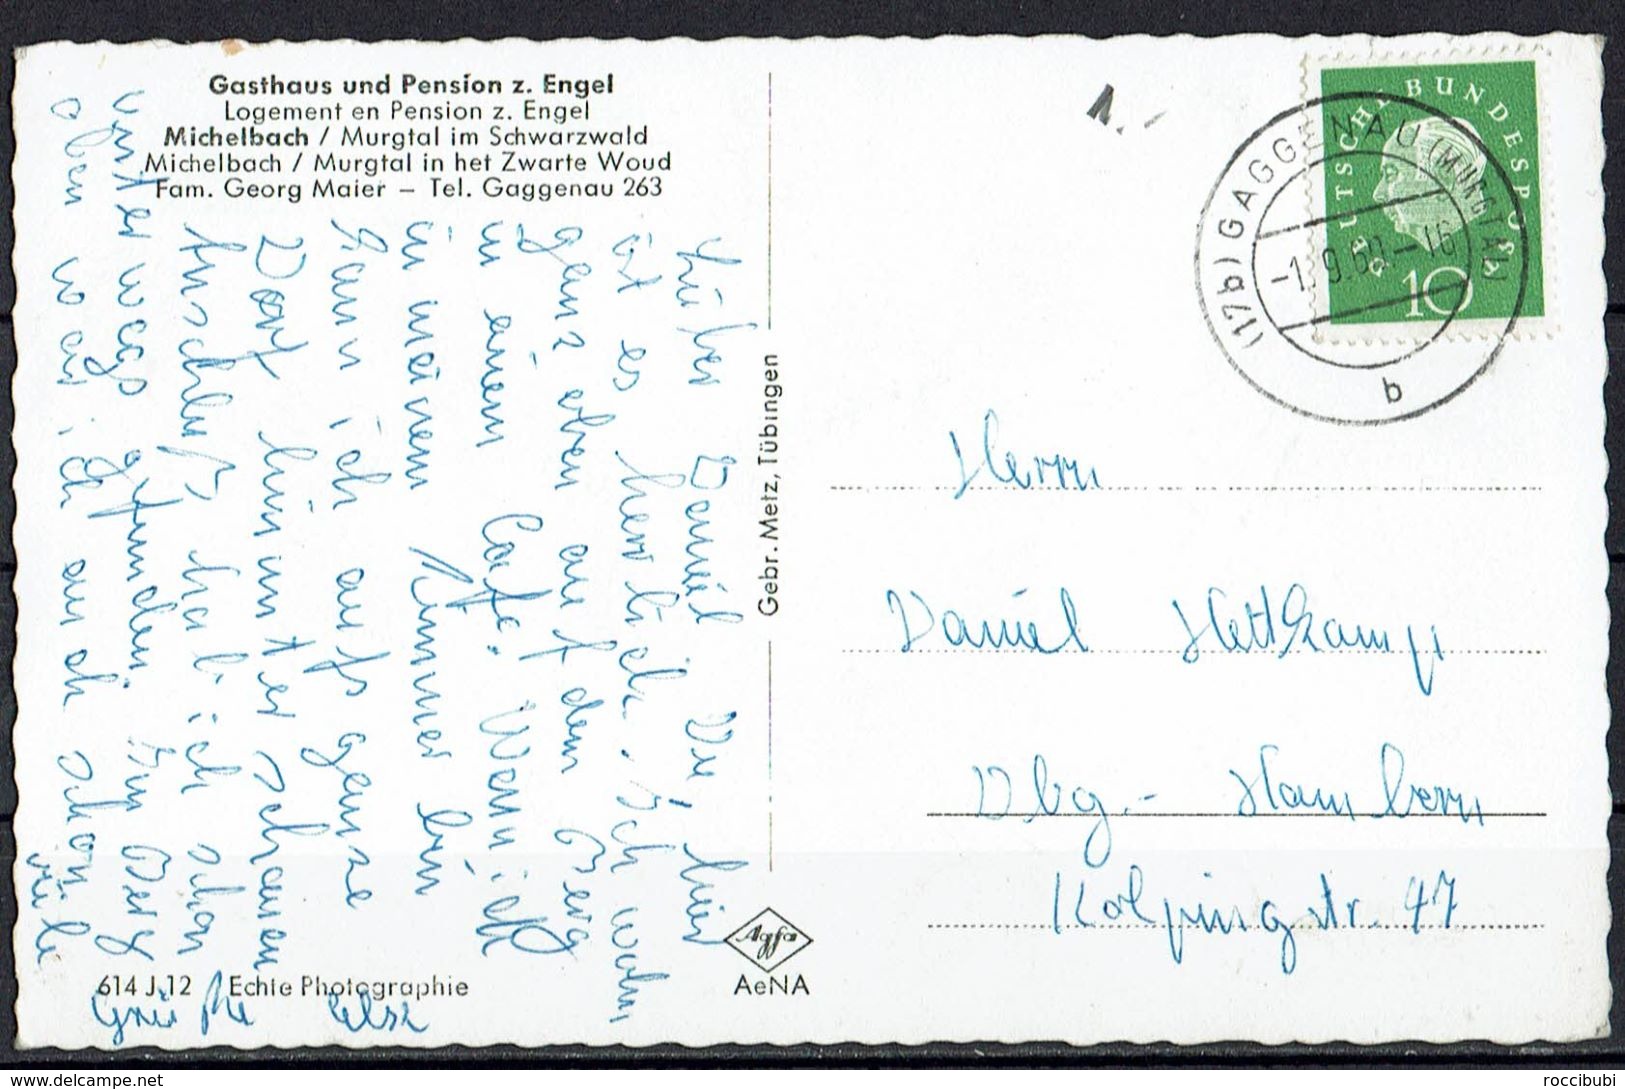 Gasthaus und Pension z. Engel
Logement en Pension z. Engel
Michelbach / Murgtal im Schwarzwald
Michelbach / Murgtal in het Zwarte Woud
Fam. Georg Maier – Tel. Gaggenau 263
Lieber Daniel Du, hier
ist es herrlich. Ich wohn
ganz oben auf dem Berg
in einem Cafe. Wenn ich
in meinem Zimmer bin
kann ich aufs ganze
Dorf hinunter schauen
Anschluß hab ich schon
unterwegs gefunden. Am Berg
oben war ich auch schon
viele
Grüße Else
614 J 12 Echte Photographie
Gebr. Metz, Tübingen
Agfa
AeNA
DEUTSCHE BUNDESPOST
10
(17b) GAGGENAU (MURGTAL)
-1.9.60-16
b
Herrn
Daniel Hettkamp
Dbg.- Hamborn
Kolpingstr. 47
roccibubi